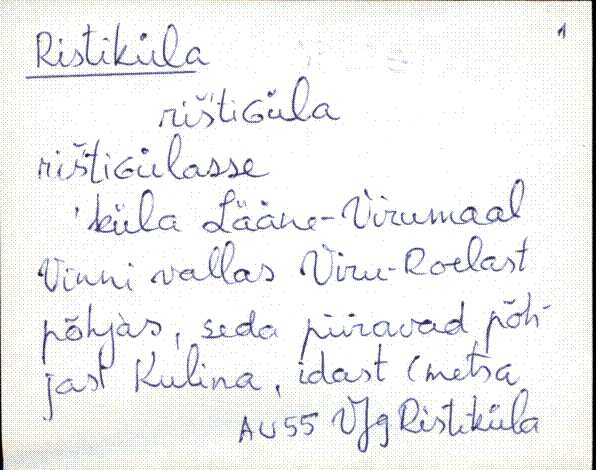 1
Ristiküla
rištiGüla
rištiGülasse
'küla Lääne-Virumaal
Vinni vallas Viru-Roelast
põhjas, seda piiravad põh-
jast Kulina, idast (metsa
AU55 VJg Ristiküla